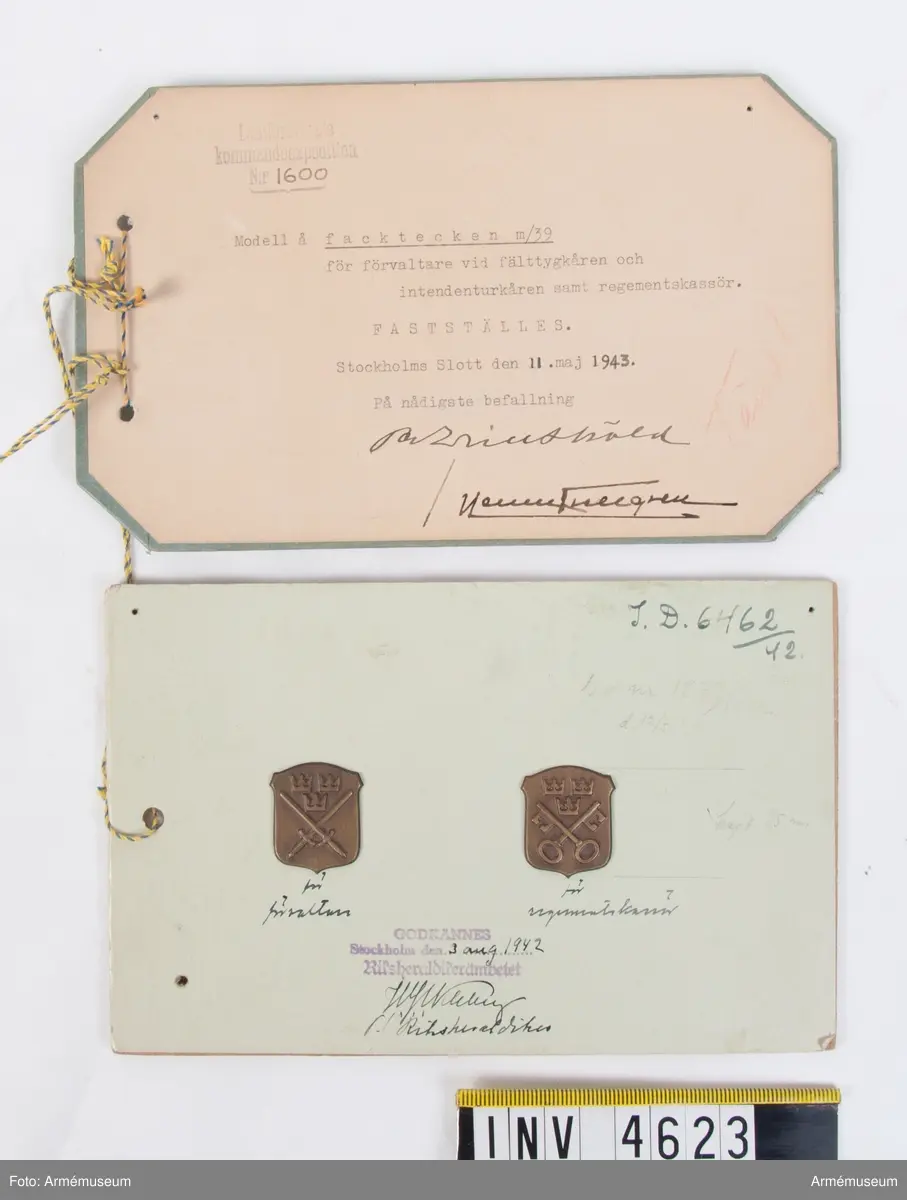 kommandoexpedition
Nr 1600
Modell å facktecken m/39
för förvaltare vid fälttygkåren och
intendenturkåren samt regementskassör.
FASTSTÄLLES.
Stockholms Slott den 11.maj 1943.
På nådigste befallning
I.D.6462/42.
för
förvaltare
för
regementskassör
GODKÄNNES
Stockholm den 3 aug. 1942
Riksheraldikerämbetet
Riksheraldiker
INV 4623
Foto: Armémuseum
Armémuseum